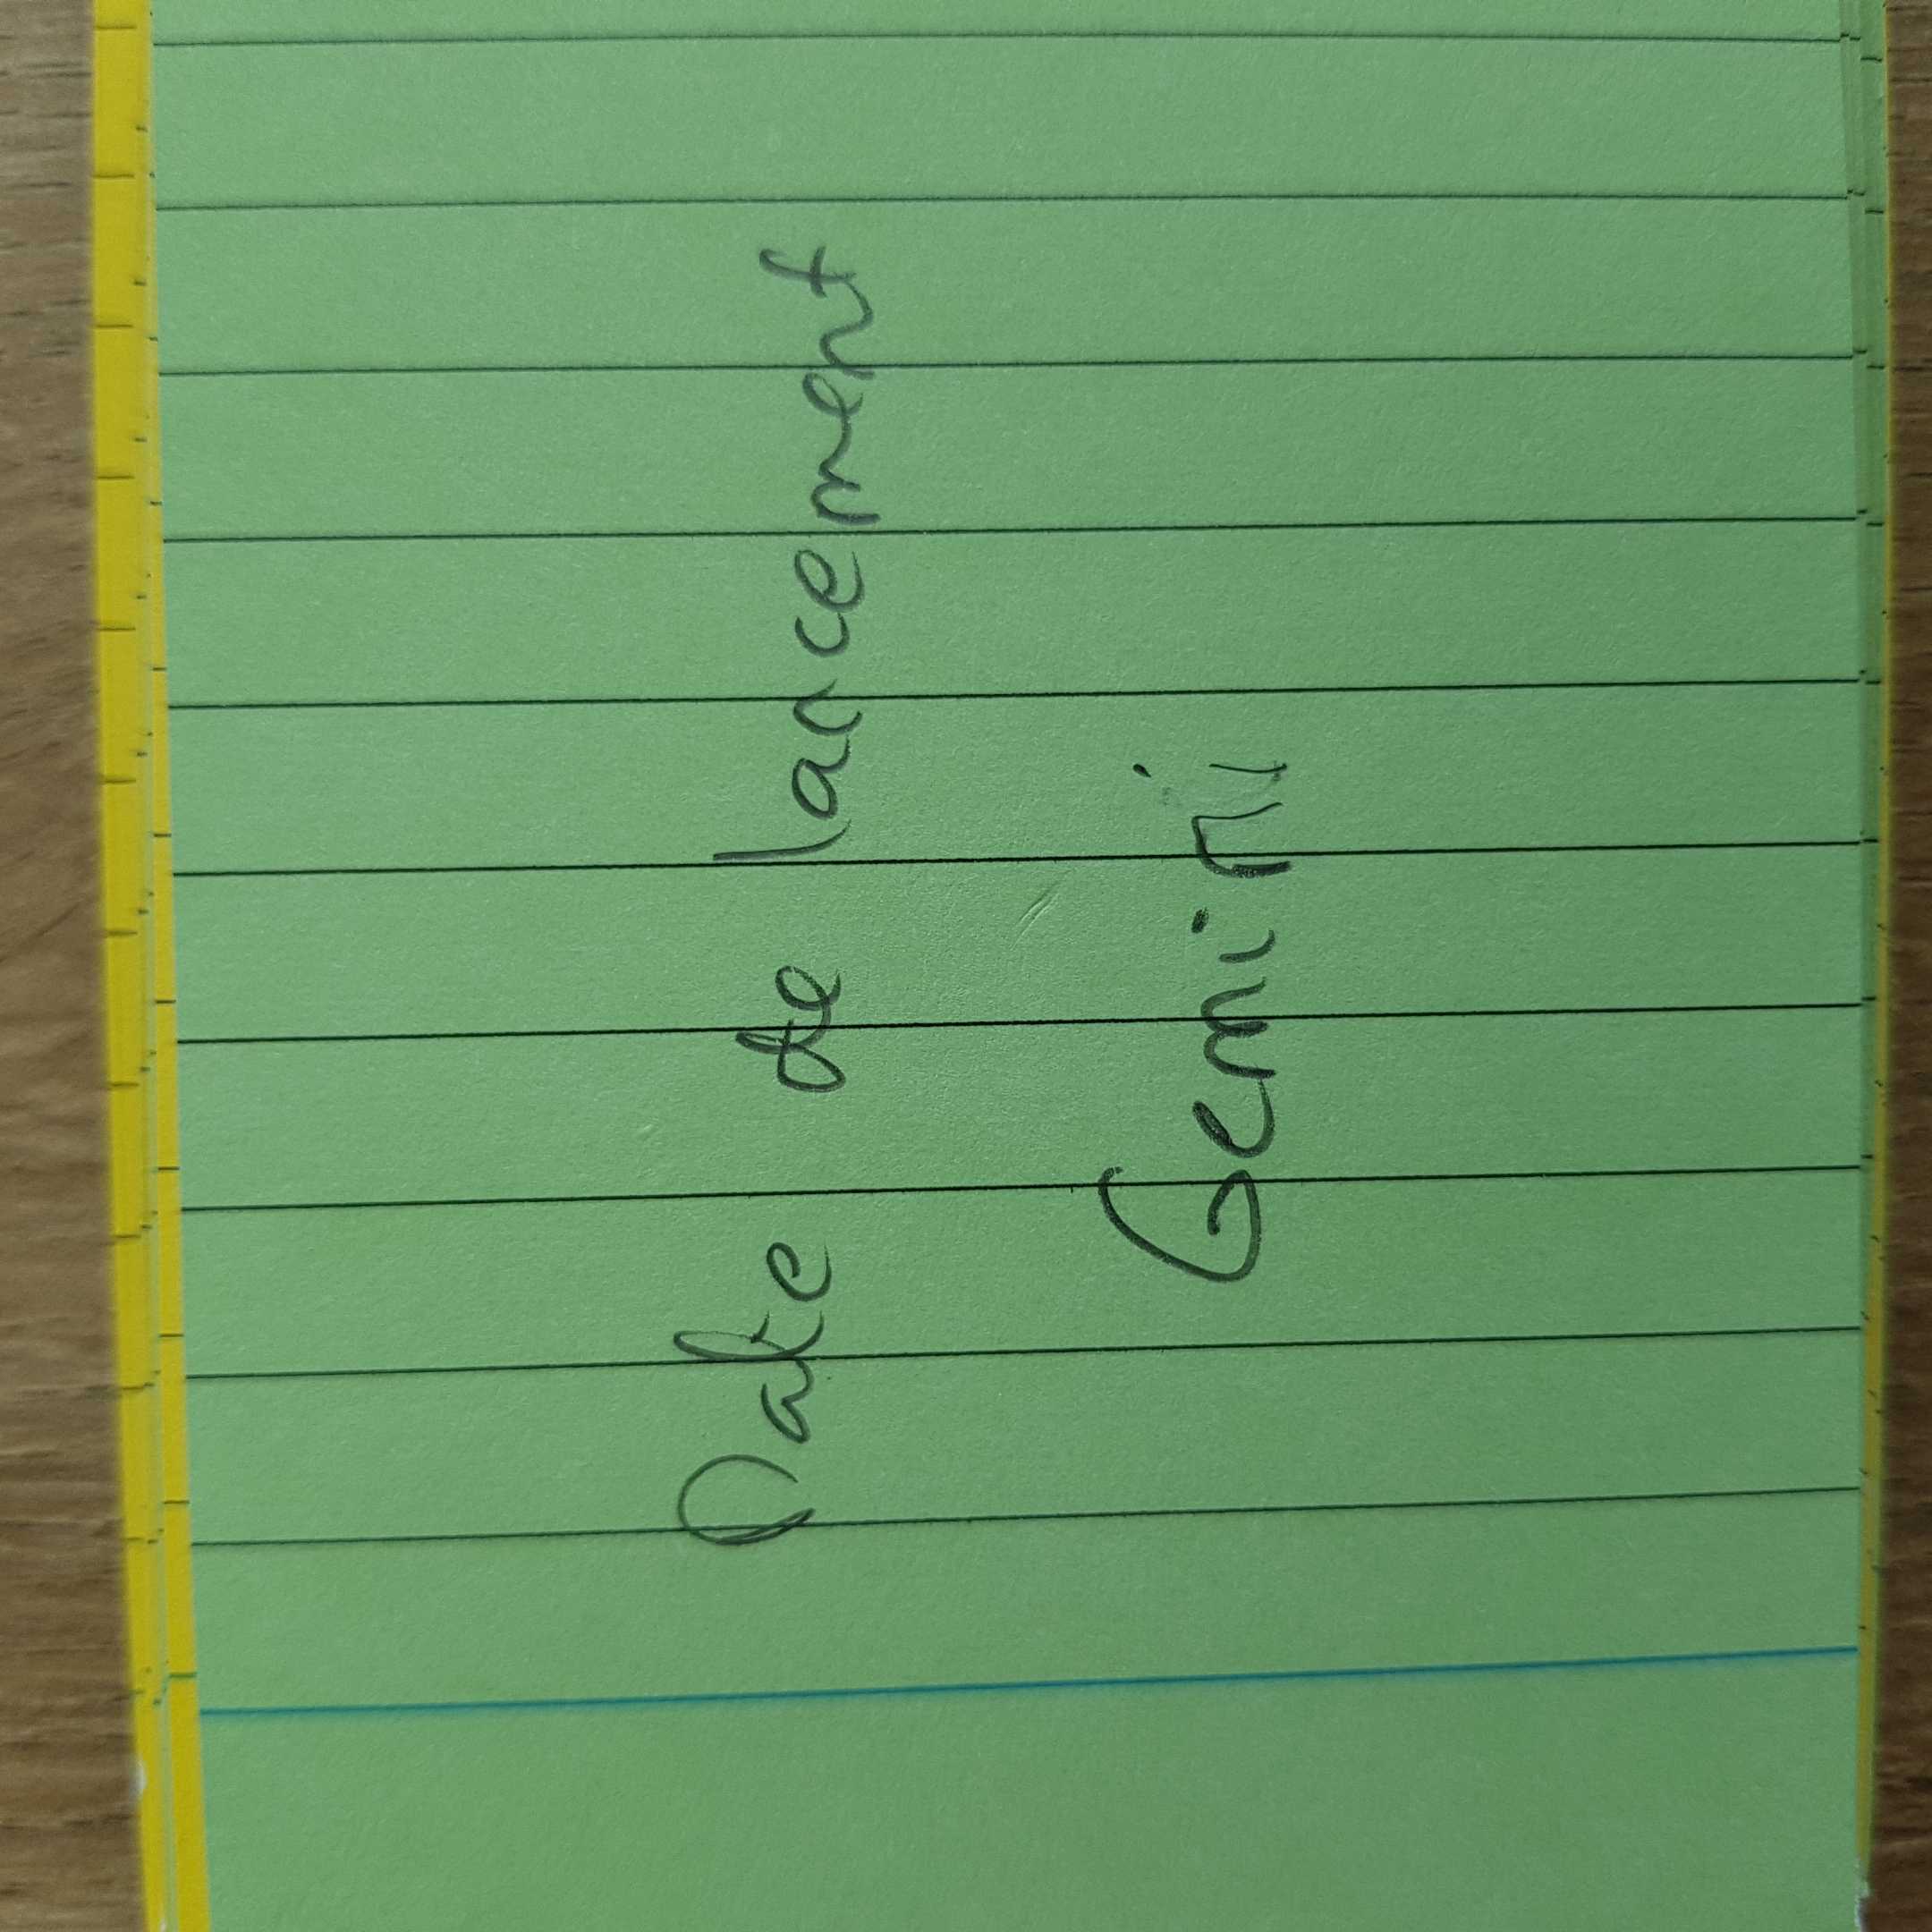 Date de lancement
Gemini